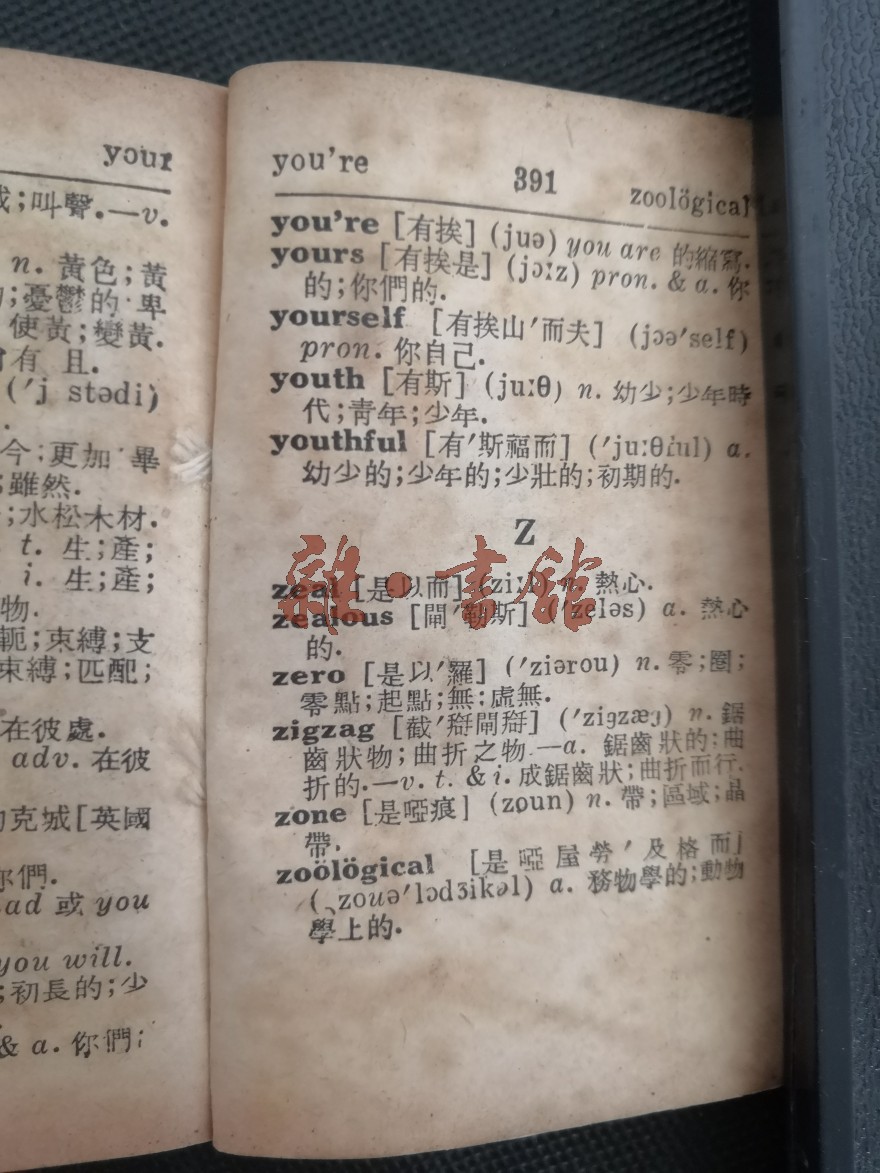 your
;叫聲.—v.
n. 黃色;黃
;憂鬱的 卑
使黃;變黃.
有 且.
('j stədi)
今;更加 畢
;雖然.
;水松木材.
t. 生;產;
i. 生;產;
物.
軛;束縛;支
束縛;匹配;
在彼處.
adv. 在彼
克城[英國
你們.
ad 或 you
you will.
;初長的;少
& a. 你們;
you're 391 zoölögical
you're [有挨] (juə) you are 的縮寫.
yours [有挨是] (jɔːz) pron. & a. 你
的;你們的.
yourself [有挨山′而夫] (jɔə'self)
pron. 你自己.
youth [有斯] (juːθ) n. 幼少;少年時
代;青年;少年.
youthful [有′斯福而] ('juːθful) a.
幼少的;少年的;少壯的;初期的.
Z
zeal [是以而] (ziːl) n. 熱心.
zealous [閘′勒斯] ('zeləs) a. 熱心
的.
zero [是以′羅] ('ziərou) n. 零;圈;
零點;起點;無;虛無.
zigzag [截′搿閘搿] ('zigzæg) n. 鋸
齒狀物;曲折之物 —a. 鋸齒狀的;曲
折的.—v. t. & i. 成鋸齒狀;曲折而行.
zone [是啞痕] (zoun) n. 帶;區域;晶
帶.
zoölögical [是啞屋勞′及格而]
(ˌzouə'lɔdʒikəl) a. 務物學的;動物
學上的.
雜·書館